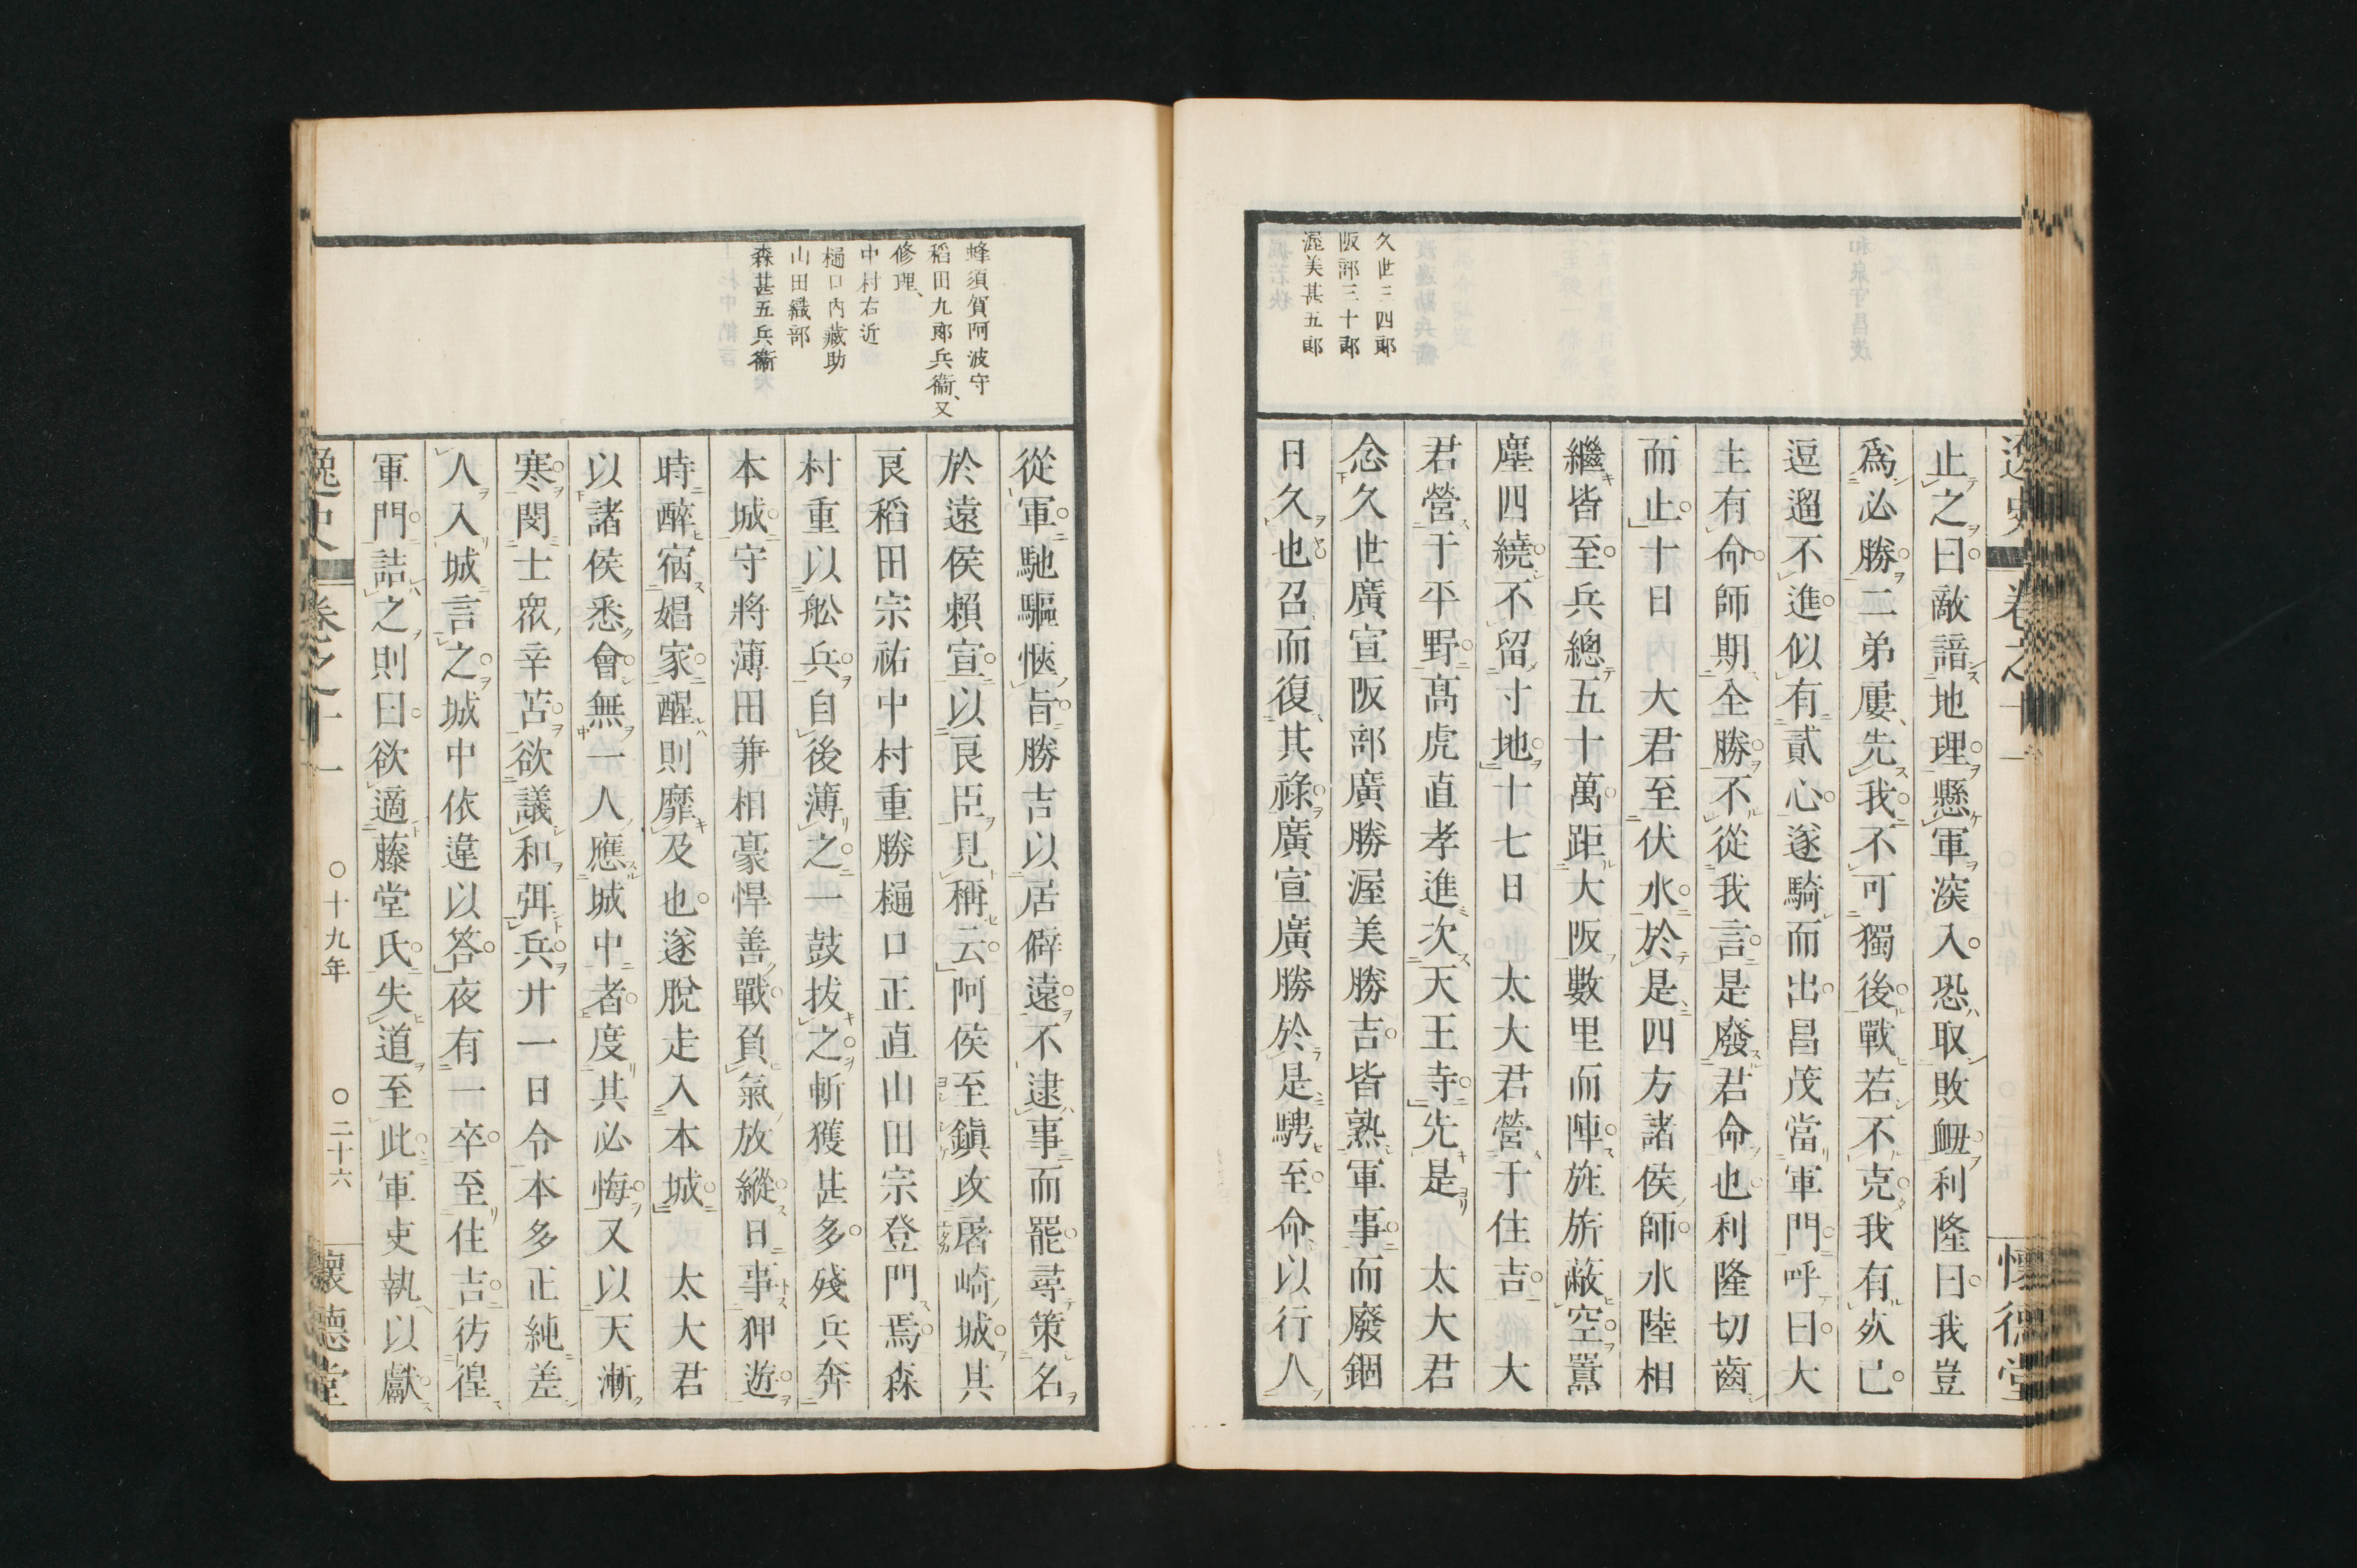 久世三四郎
阪部三十郎
渥美甚五郎
止之曰敵諳地理懸軍深入恐取敗衄利隆曰我豈
爲必勝二弟屢先我不可獨後戰若不克我有死已
逗遛不進似有貳心遂騎而出昌茂當軍門呼曰大
主有命師期全勝不從我言是廢君命也利隆切齒
而止十日 大君至伏水於是四方諸侯師水陸相
繼皆至兵總五十萬距大阪數里而陣旌旂蔽空嚣
塵四繞不留寸地十七日 太大君營于住吉 大
君營于平野高虎直孝進次天王寺先是 太大君
念久世廣宣阪部廣勝渥美勝吉皆熟軍事而廢錮
日久也召而復其祿廣宣廣勝於是騁至命以行人
蜂須賀阿波守
稻田九郎兵衞、又
修理、
中村右近
樋口内藏助
山田織部
森甚五兵衞
從軍馳驅愜旨勝吉以居僻遠不逮事而罷尋策名
於遠侯賴宣以良臣見稱云阿侯至鎭攻屠崎城其
良稻田宗祐中村重勝樋口正直山田宗登門焉森
村重以舩兵自後薄之一鼓拔之斬獲甚多殘兵奔
本城守將薄田兼相豪悍善戰負氣放縱日事狎遊
時醉宿娼家醒則靡及也遂脫走入本城 太大君
以諸侯悉會無一人應城中者度其必悔又以天漸
寒閔士衆辛苦欲議和弭兵廿一日令本多正純差
人入城言之城中依違以答夜有一卒至住吉彷徨
軍門詰之則曰欲適藤堂氏失道至此軍吏執以獻
逸史 卷之十一 〇十九年 〇二十六 懷德堂